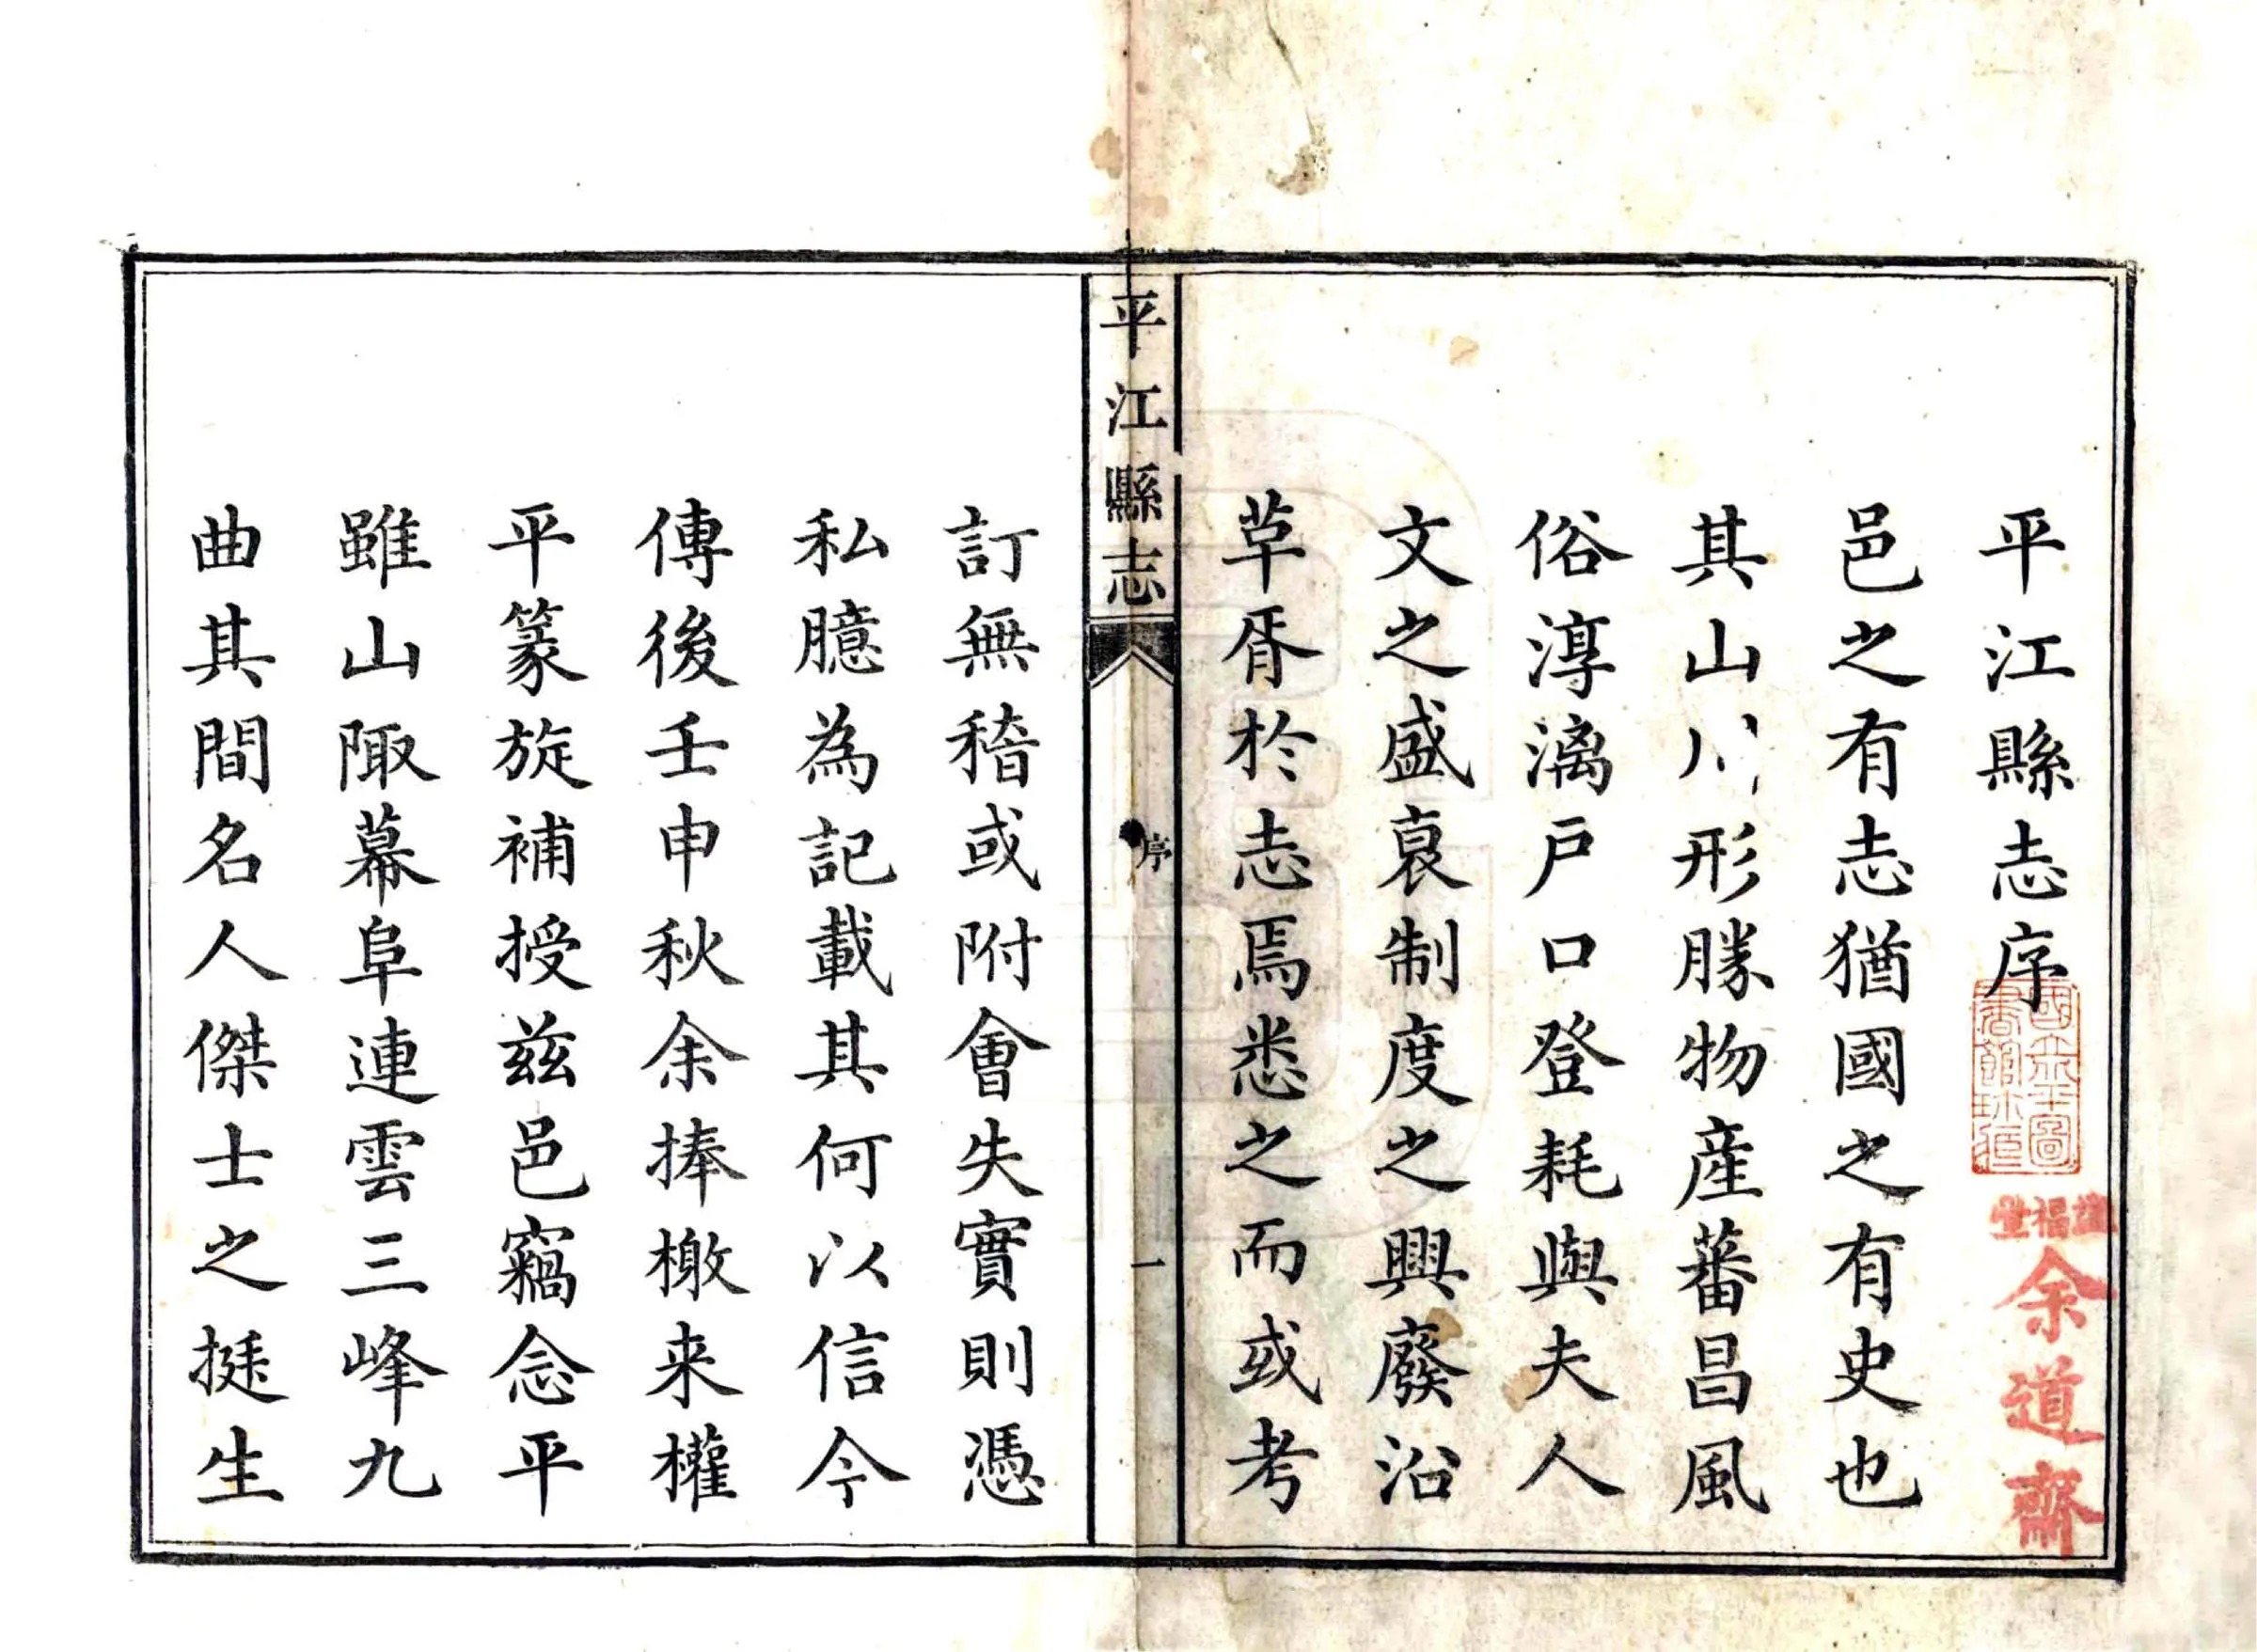 平江縣志序
邑之有志猶國之有史也
其山川形勝物產蕃昌風
俗淳漓戶口登耗與夫人
文之盛衰制度之興廢沿
革胥於志焉悉之而或考
平江縣志
序
一
訂無稽或附會失實則憑
私臆為記載其何以信今
傳後壬申秋余捧檄来權
平篆旋補授兹邑竊念平
雖山陬幕阜連雲三峰九
曲其間名人傑士之挺生
國立北平圖
書館珍藏
余道齋